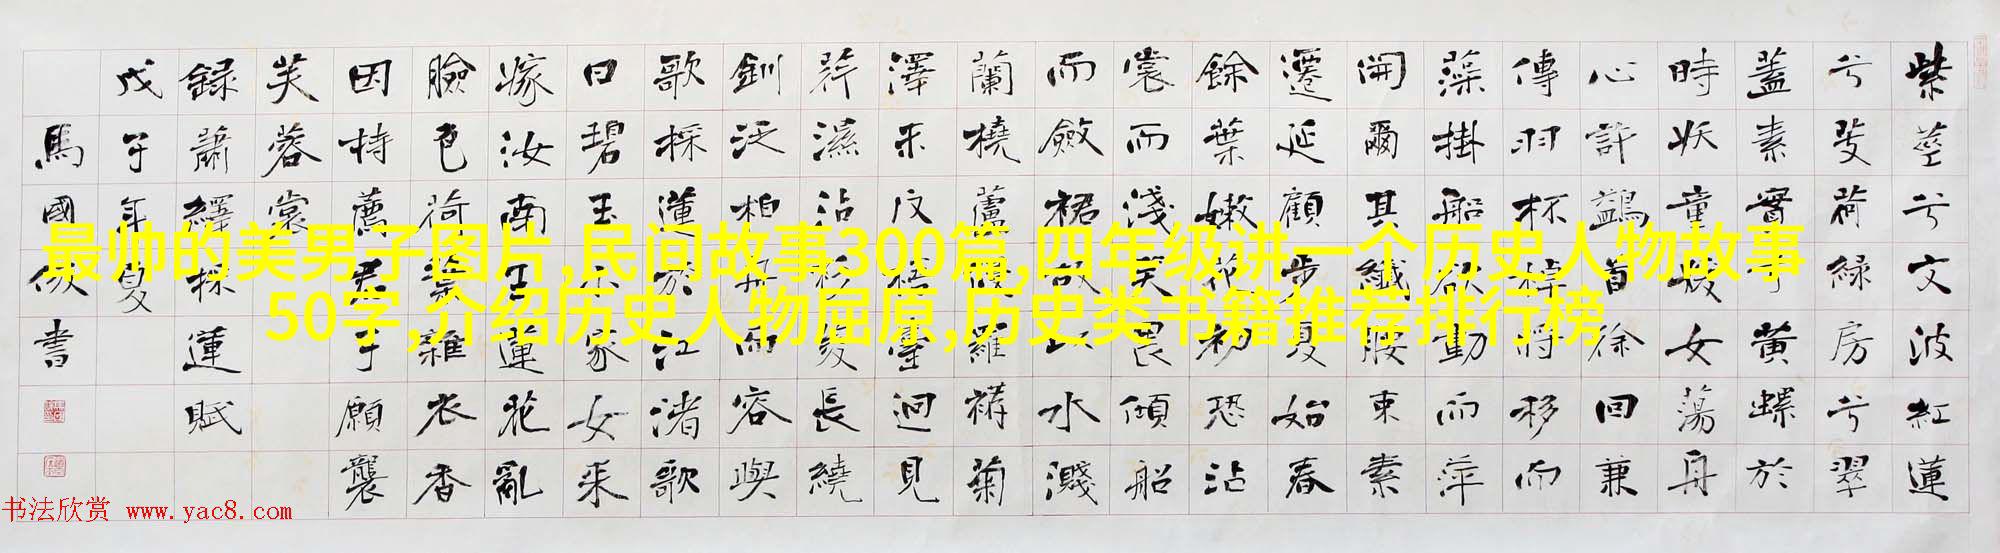 紫莖兮文波紅蓮
兮芰荷綠房兮翠
蓋素實兮黃螺於
時妖童媛女蕩舟
心許鷁首徐回兼
傳羽杯棹將移而
藻掛船欲動而萍
開爾其纖腰束素
遷延顧步夏始春
餘葉嫩花初恐沾
裳而淺笑畏傾船
而斂裾故以水濺
蘭橈蘆侵羅菊
澤未反梧臺迥見
荇濕沾衫菱長繞
釧泛柏舟而容與
歌採蓮於江渚歌
曰碧玉小家女来
嫁汝南王蓮花亂
臉色荷葉雜衣香
因持薦君子願襲
芙蓉裳
録蕭繹採蓮賦
戊子年夏
馬國俊書
最帅的美男子图片,民间故事300篇,四年级讲一个历史人物故事
50字,介绍历史人物屈原,历史类书籍推荐排行榜
书法欣赏 www.yac8.com